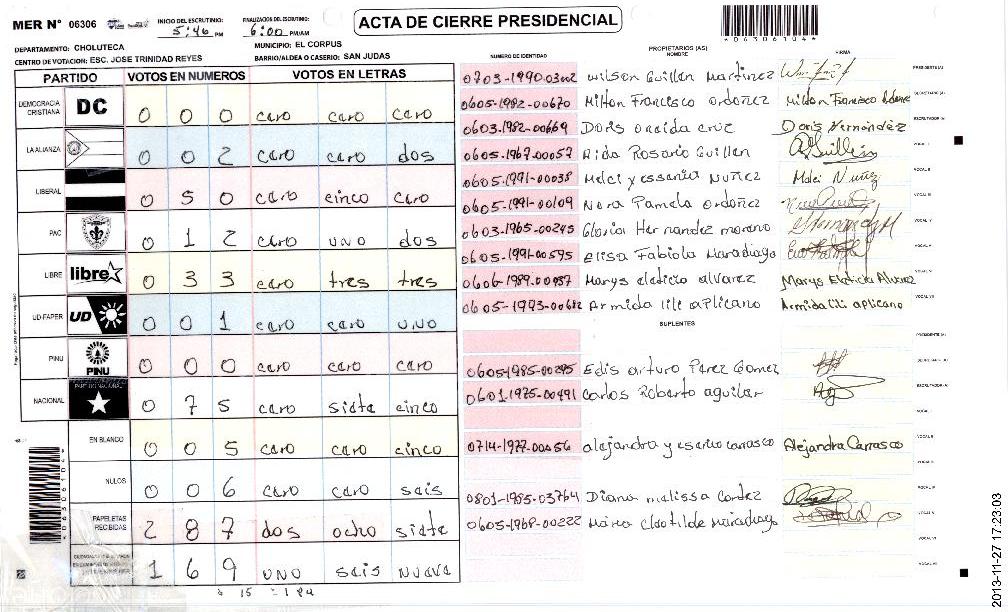 MER N° 06306
INICIO DEL ESCRUTINIO: 5:46 PM
FINALIZACION DEL ESCRUTINIO: 6:00 PM/AM
ACTA DE CIERRE PRESIDENCIAL
*0630610 4*
DEPARTAMENTO: CHOLUTECA
MUNICIPIO: EL CORPUS
CENTRO DE VOTACION: ESC. JOSE TRINIDAD REYES
BARRIO/ALDEA O CASERIO: SAN JUDAS
PARTIDO VOTOS EN NUMEROS VOTOS EN LETRAS
DEMOCRACIA CRISTIANA DC 0 0 0 cero cero cero
LA ALIANZA 0 0 2 cero cero dos
LIBERAL 0 5 0 cero cinco cero
PAC 0 1 2 cero uno dos
LIBRE libre 0 3 3 cero tres tres
UD-FAPER UD 0 0 1 cero cero uno
PINU PINU 0 0 0 cero cero cero
NACIONAL PARTIDO NACIONAL 0 7 5 cero siete cinco
EN BLANCO 0 0 5 cero cero cinco
NULOS 0 0 6 cero cero seis
PAPELETAS RECIBIDAS 2 8 7 dos ocho siete
1 6 9 uno seis nueve
NUMERO DE IDENTIDAD PROPIETARIOS (AS) NOMBRE FIRMA
0703-1990-03002 Wilson Guillen Martinez PRESIDENTE(A)
0605-1982-00670 Milton Francisco ordoñez Milton Francisco SECRETARIO(A)
0603-1982-00669 Doris oneida cruz Doris Hernández ESCRUTADOR(A)
0605-1967-00057 Aida Rosario Guillen AGuillen VOCAL I
0605-1991-00038 Melci yessenia Nuñez Melci Nuñez VOCAL II
0605-1991-00109 Nora Pamela ordoñez VOCAL III
0603-1965-00245 Gloria Hernandez moreno VOCAL IV
0605-1991-00595 Elisa Fabiola Maradiaga VOCAL V
0606-1989-00087 Marys eleticia alvarez Marys Eleticia Alvarez VOCAL VI
0605-1993-00682 Armida lili aplicano Armida lili aplicano VOCAL VII
SUPLENTES
PRESIDENTE (A)
0605-1985-00295 Edis arturo Perez Gomez SECRETARIO(A)
0601-1975-00491 Carlos Roberto aguilar ESCRUTADOR(A)
VOCAL I
0714-1977-00056 alejandra y carrasco Alejandra Carrasco VOCAL II
VOCAL III
0801-1985-03764 Diana melissa Cortez VOCAL IV
0605-1968-00222 Maria Clotilde Maradiaga VOCAL V
VOCAL VI
VOCAL VII
2013-11-27 17:23:03